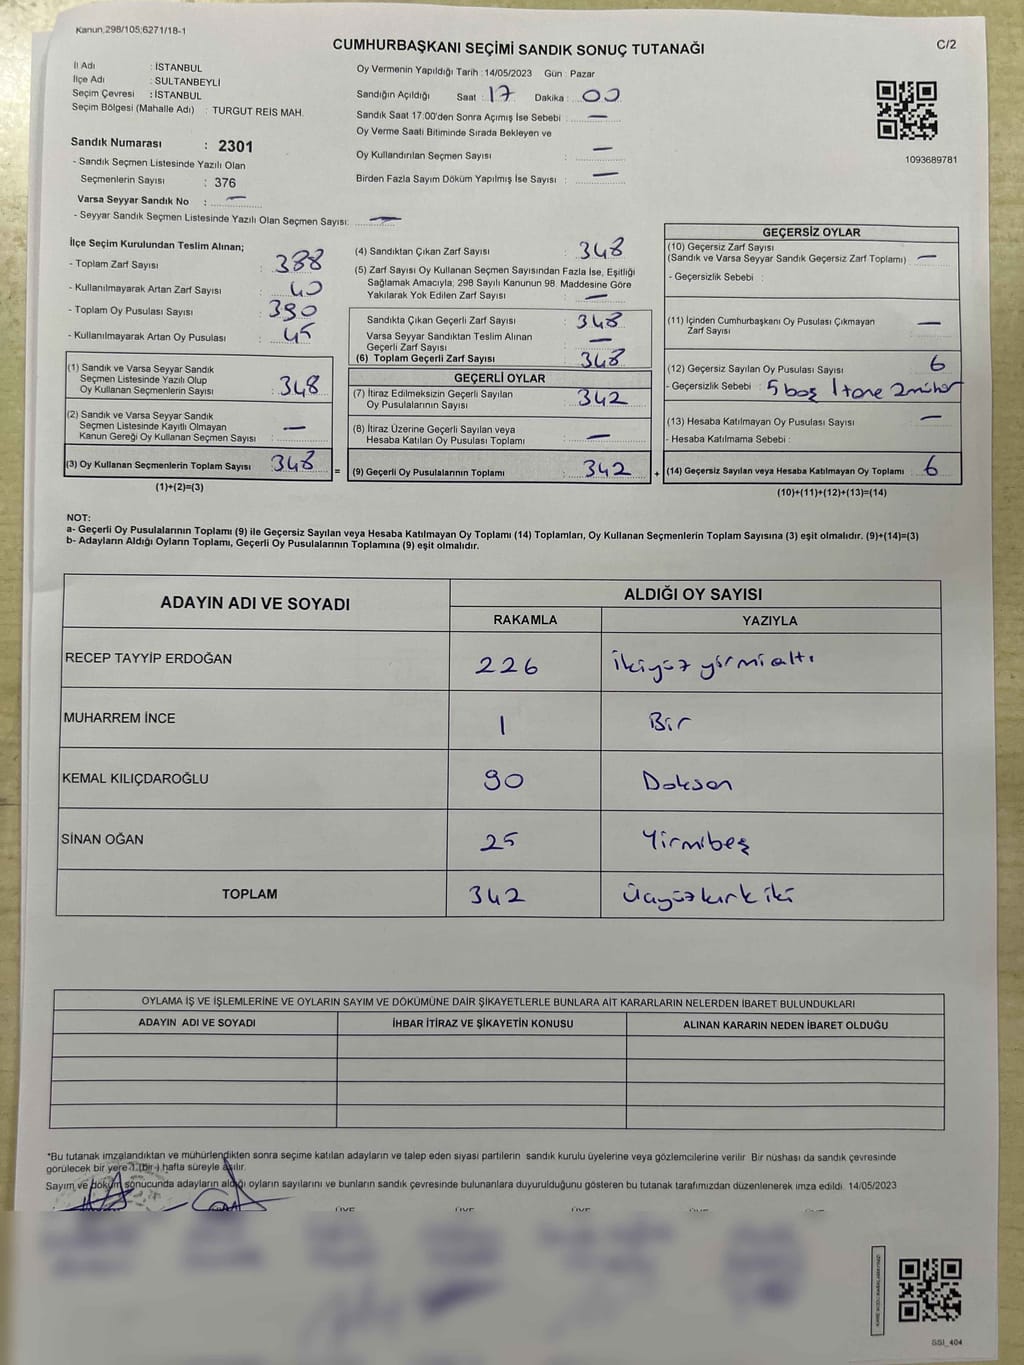 Kanun;298/105;6271/18-1
CUMHURBAŞKANI SEÇİMİ SANDIK SONUÇ TUTANAĞI
C/2
İl Adı : İSTANBUL
İlçe Adı : SULTANBEYLİ
Seçim Çevresi : İSTANBUL
Seçim Bölgesi (Mahalle Adı) : TURGUT REİS MAH.
Sandık Numarası : 2301
- Sandık Seçmen Listesinde Yazılı Olan
Seçmenlerin Sayısı : 376
Varsa Seyyar Sandık No : —
- Seyyar Sandık Seçmen Listesinde Yazılı Olan Seçmen Sayısı: —
Oy Vermenin Yapıldığı Tarih : 14/05/2023 Gün : Pazar
Sandığın Açıldığı Saat : 17 Dakika : 00
Sandık Saat 17:00'den Sonra Açımış İse Sebebi : —
Oy Verme Saati Bitiminde Sırada Bekleyen ve
Oy Kullandırılan Seçmen Sayısı : —
Birden Fazla Sayım Döküm Yapılmış İse Sayısı : —
1093689781
İlçe Seçim Kurulundan Teslim Alınan;
- Toplam Zarf Sayısı : 388
- Kullanılmayarak Artan Zarf Sayısı : 40
- Toplam Oy Pusulası Sayısı : 390
- Kullanılmayarak Artan Oy Pusulası : 45
(1) Sandık ve Varsa Seyyar Sandık
Seçmen Listesinde Yazılı Olup
Oy Kullanan Seçmenlerin Sayısı : 348
(2) Sandık ve Varsa Seyyar Sandık
Seçmen Listesinde Kayıtlı Olmayan
Kanun Gereği Oy Kullanan Seçmen Sayısı : —
(3) Oy Kullanan Seçmenlerin Toplam Sayısı : 348
(1)+(2)=(3)
=
(4) Sandıktan Çıkan Zarf Sayısı : 348
(5) Zarf Sayısı Oy Kullanan Seçmen Sayısından Fazla İse, Eşitliği
Sağlamak Amacıyla; 298 Sayılı Kanunun 98. Maddesine Göre
Yakılarak Yok Edilen Zarf Sayısı : —
Sandıkta Çıkan Geçerli Zarf Sayısı : 348
Varsa Seyyar Sandıktan Teslim Alınan
Geçerli Zarf Sayısı : —
(6) Toplam Geçerli Zarf Sayısı : 348
GEÇERLİ OYLAR
(7) İtiraz Edilmeksizin Geçerli Sayılan
Oy Pusulalarının Sayısı : 342
(8) İtiraz Üzerine Geçerli Sayılan veya
Hesaba Katılan Oy Pusulası Toplamı : —
(9) Geçerli Oy Pusulalarının Toplamı : 342
+
GEÇERSİZ OYLAR
(10) Geçersiz Zarf Sayısı
(Sandık ve Varsa Seyyar Sandık Geçersiz Zarf Toplamı) —
- Geçersizlik Sebebi :
(11) İçinden Cumhurbaşkanı Oy Pusulası Çıkmayan
Zarf Sayısı —
(12) Geçersiz Sayılan Oy Pusulası Sayısı 6
- Geçersizlik Sebebi : 5 boş 1 tane 2 mühür
(13) Hesaba Katılmayan Oy Pusulası Sayısı —
- Hesaba Katılmama Sebebi :
(14) Geçersiz Sayılan veya Hesaba Katılmayan Oy Toplamı 6
(10)+(11)+(12)+(13)=(14)
NOT:
a- Geçerli Oy Pusulalarının Toplamı (9) ile Geçersiz Sayılan veya Hesaba Katılmayan Oy Toplamı (14) Toplamları, Oy Kullanan Seçmenlerin Toplam Sayısına (3) eşit olmalıdır. (9)+(14)=(3)
b- Adayların Aldığı Oyların Toplamı, Geçerli Oy Pusulalarının Toplamına (9) eşit olmalıdır.
ADAYIN ADI VE SOYADI
ALDIĞI OY SAYISI
RAKAMLA YAZIYLA
RECEP TAYYİP ERDOĞAN 226 ikiyüz yirmi altı
MUHARREM İNCE 1 Bir
KEMAL KILIÇDAROĞLU 90 Doksan
SİNAN OĞAN 25 Yirmibeş
TOPLAM 342 Üçyüz kırk iki
OYLAMA İŞ VE İŞLEMLERİNE VE OYLARIN SAYIM VE DÖKÜMÜNE DAİR ŞİKAYETLERLE BUNLARA AİT KARARLARIN NELERDEN İBARET BULUNDUKLARI
ADAYIN ADI VE SOYADI İHBAR İTİRAZ VE ŞİKAYETİN KONUSU ALINAN KARARIN NEDEN İBARET OLDUĞU
*Bu tutanak imzalandıktan ve mühürlendikten sonra seçime katılan adayların ve talep eden siyasi partilerin sandık kurulu üyelerine veya gözlemcilerine verilir. Bir nüshası da sandık çevresinde
görülecek bir yere 1 (bir) hafta süreyle asılır.
Sayım ve döküm sonucunda adayların aldığı oyların sayılarını ve bunların sandık çevresinde bulunanlara duyurulduğunu gösteren bu tutanak tarafımızdan düzenlenerek imza edildi. 14/05/2023
SSI_404